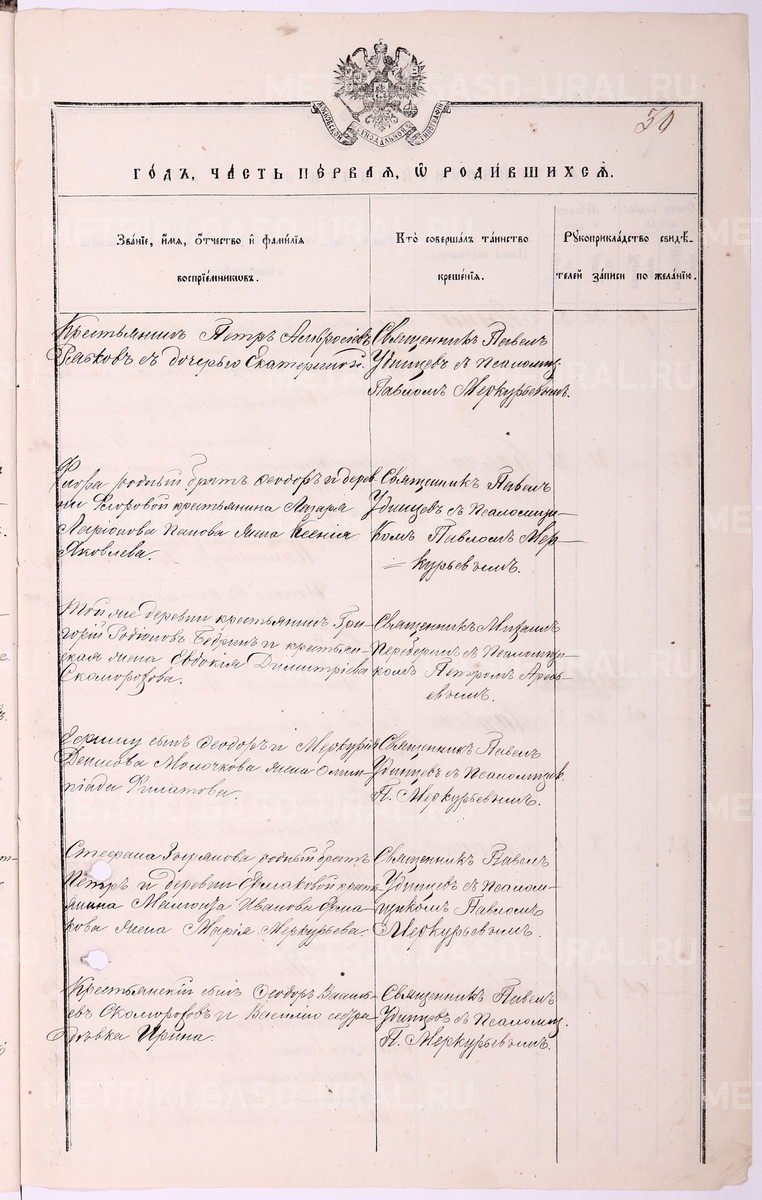 МОСКОВСКОЙ СѴНОДАЛЬНОЙ ТИПОГРАФІИ
30
ГОДЪ, ЧАСТЬ ПЕРВАЯ, Ѡ РОДИВШИХСЯ.
Званіе, имя, отчество и фамилія
воспріемниковъ.
Кто совершалъ таинство
крещенія.
Рукоприкладство свидѣ-
телей записи по желанію.
Крестьянинъ Петръ Амвросіевъ
съ дочерью Екатериной.
Священникъ Павелъ
Удинцевъ съ Псаломщ.
Павломъ Меркурьевымъ.
Флора родный братъ Ѳеодоръ и дерев
ни Флоровой крестьянина Лазаря
Ларіонова Панова жена Ксенія
Яковлева.
Священникъ Павелъ
Удинцевъ съ Псаломщи-
комъ Павломъ Мер-
курьевымъ.
Той же деревни крестьянинъ Гри-
горій Родіоновъ Бедринъ и крестьян-
ская жена Евдокія Димитріева
Скоморохова.
Священникъ Михаилъ
съ Псаломщи-
комъ Петромъ Арсь
евымъ.
сынъ Ѳеодоръ и Меркурія
Денисова Молочкова жена Олим-
піада Филатова.
Священникъ Павелъ
Удинцевъ съ Псаломщик.
П. Меркурьевымъ.
Стефана Зырянова родный братъ
Петръ и деревни Ермаковой кресть
янина Иванова Ерма-
кова жена Марія Меркурьева.
Священникъ Павелъ
Удинцевъ съ Псалом-
щикомъ Павломъ
Меркурьевымъ.
Крестьянскій сынъ Ѳеодоръ Василь
евъ Скомороховъ и Василію сестра
дѣвка Ирина.
Священникъ Павелъ
Удинцевъ съ Псаломщ.
П. Меркурьевымъ.
METRIKI.GASO-URAL.RU